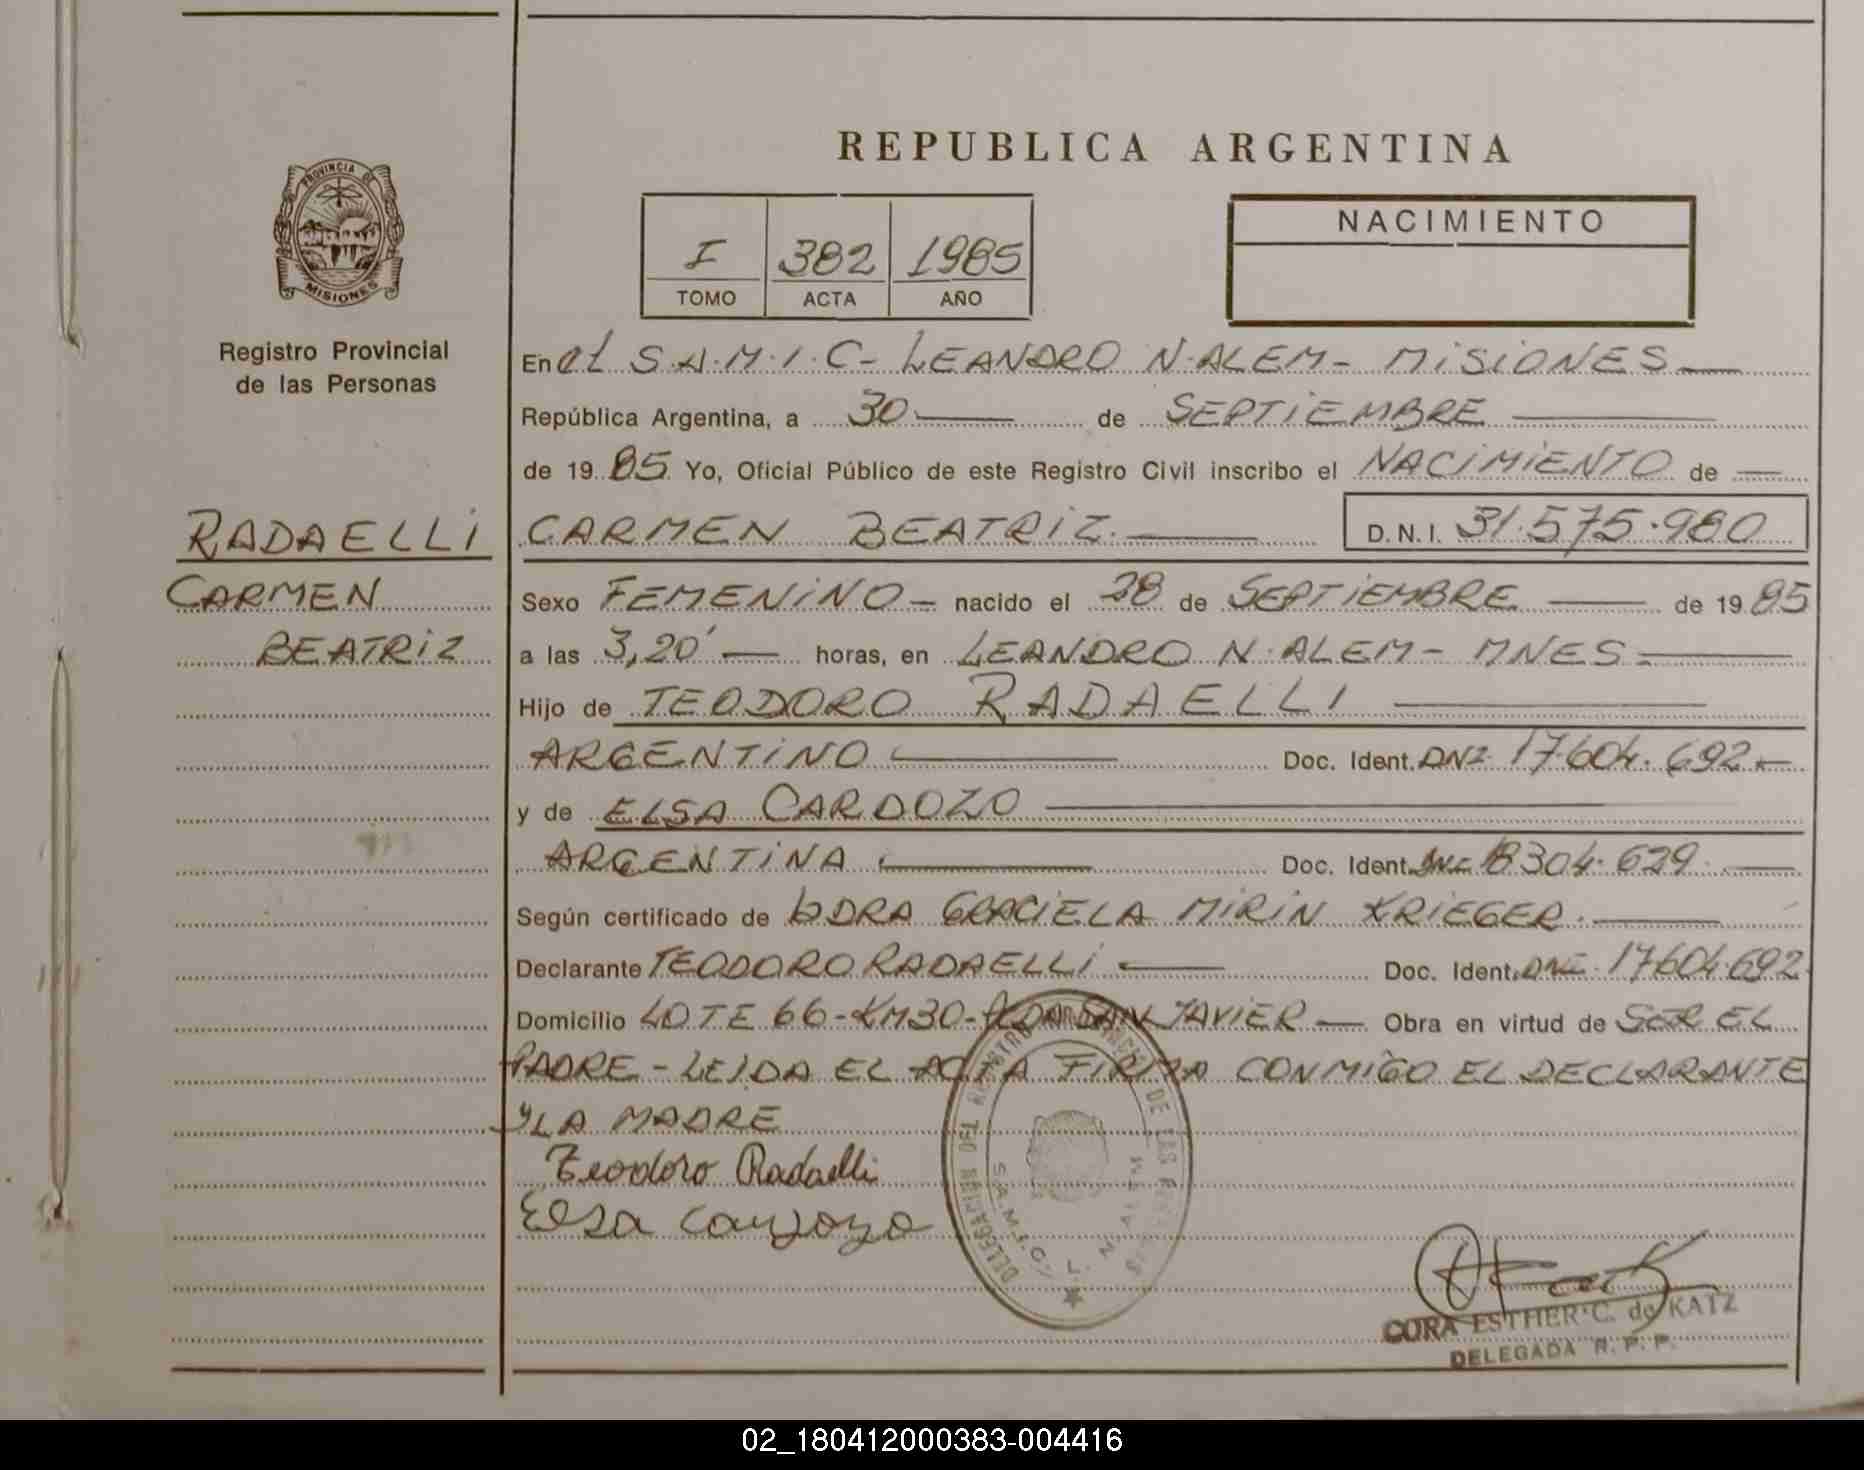 REPUBLICA ARGENTINA
PROVINCIA DE
MISIONES
Registro Provincial
de las Personas
I 382 1985
TOMO ACTA AÑO
NACIMIENTO
En el S.A.M.I.C- LEANDRO N. ALEM- MISIONES
República Argentina, a 30 de SEPTIEMBRE
de 19 85 Yo, Oficial Público de este Registro Civil inscribo el NACIMIENTO de
RADAELLI
CARMEN
BEATRIZ
CARMEN BEATRIZ. D.N.I. 31.575.980
Sexo FEMENINO - nacido el 28 de SEPTIEMBRE de 19 85
a las 3,20' horas, en LEANDRO N. ALEM- MNES-
Hijo de TEODORO RADAELLI
ARGENTINO Doc. Ident. DNI 17.604.692-
y de ELSA CARDOZO
ARGENTINA Doc. Ident. DNI 18304.629
Según certificado de DRA GRACIELA MIRIN KRIEGER.
Declarante TEODORO RADAELLI Doc. Ident. DNI 17604.692
Domicilio LOTE 66-KM30- SAN JAVIER Obra en virtud de SER EL
PADRE - LEIDA EL ACTA FIRMA CONMIGO EL DECLARANTE
Y LA MADRE
Teodoro Radaelli
Elsa
DELEGACION DEL REGISTRO PROVINCIAL DE LAS PERSONAS
S.A.M.I.C. L. N. ALEM
CORA ESTHER C. de KATZ
DELEGADA R. P. P.
02_180412000383-004416